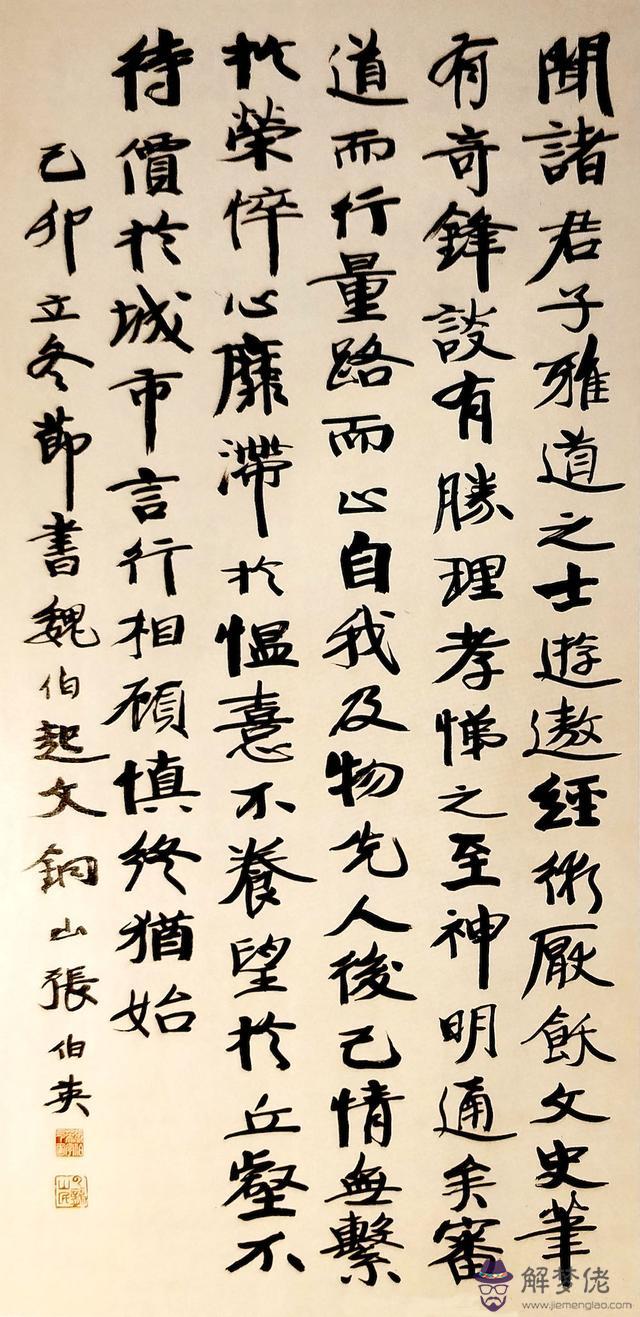 聞諸君子雅道之士遊遨經術厭飫文史筆
有奇鋒談有勝理孝悌之至神明通矣審
道而行量路而止自我及物先人後己情無繫
於榮悴心靡滯於愠憙不養望於丘壑不
待價於城市言行相顧慎終猶始
己卯立冬節書魏伯起文銅山張伯英
解梦佬
www.jiemenglao.com